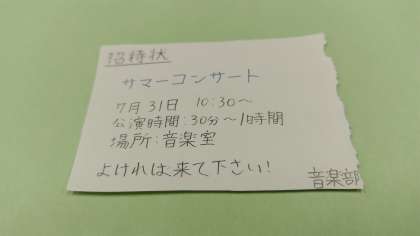 招待状
サマーコンサート
7月31日 10:30～
公演時間:30分～1時間
場所:音楽室
よければ来て下さい!
音楽部